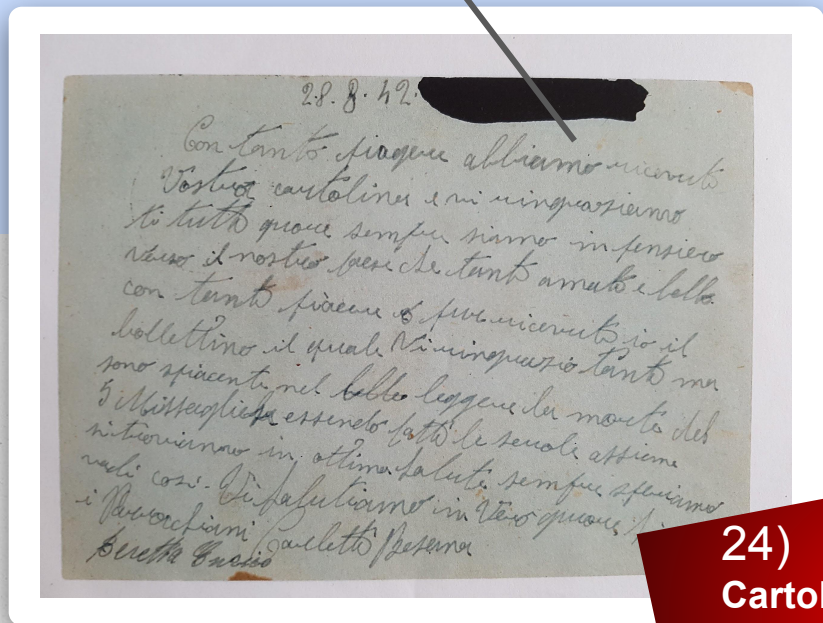 28.8.42.
Con tanto piagere abbiamo ricevuto
Vostra cartolina e vi ringraziamo
di tutto quore sempre siamo in pensiero
verso il nostro paese che tanto amato e bello
con tanto piacere o pure ricevuto io il
bollettino il quale Vi ringrazio tanto ma
sono spiacente nel leggere la morte del
5 Missagliese essendo fatto le scuole assieme
ci troviamo in ottima salute sempre speriamo
vadi cosi. Vi salutiamo in Vero quore
i Parrocchiani Carletto Besana
Beretta
24)
Cartol